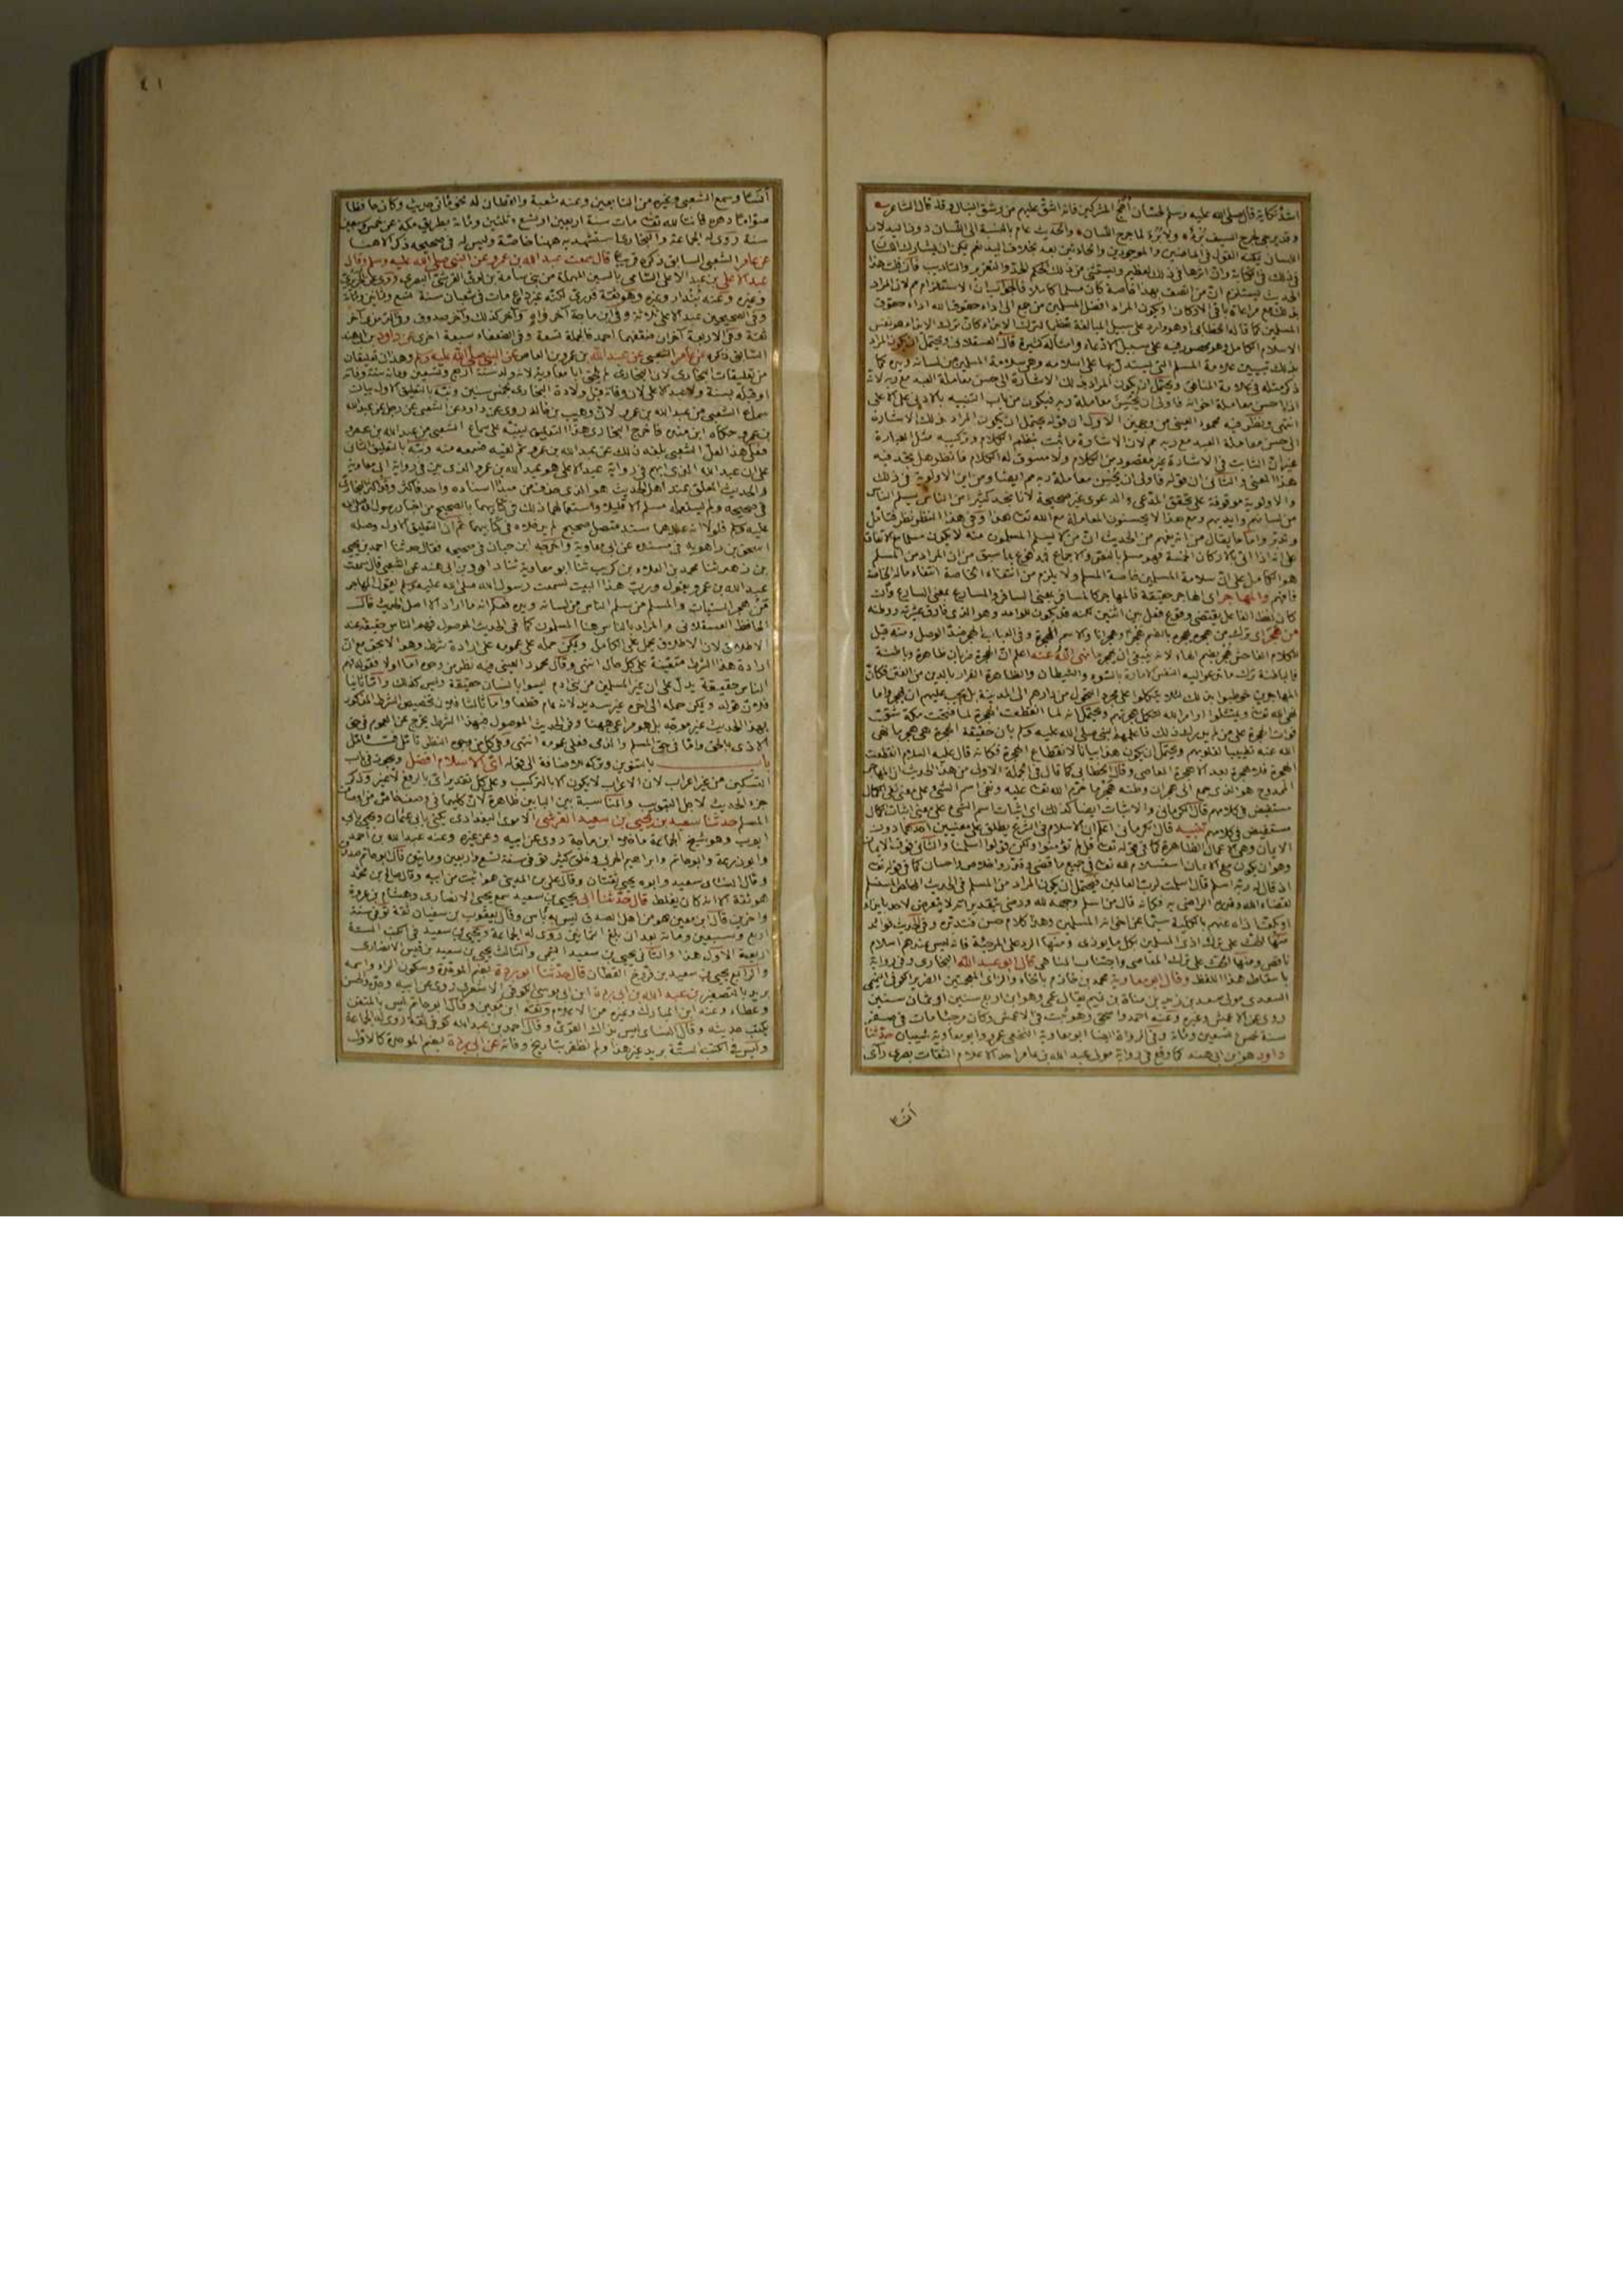 اشد نكاية قال صلى الله عليه وسلم لحسان اهج المشركين فانه اشق عليهم من رشق النبال وقد قال الشاعر
وقد يرجى لجرح السيف برء ولا برء لما جرح اللسان والحديث عام بالنسبة الى اللسان دون اليد لان
اللسان يمكنه القول في الماضين والموجودين والحادثين بعد بخلاف اليد نعم يمكن ان يشارك اللسان
في ذلك في الكتابة وان اثرها في ذلك لعظيم ويستثنى من ذلك الحكم الحد والتعزير والتأديب فان قلت هذا
الحديث يستلزم ان من اتصف بهذا خاصة كان مسلما كاملا فالجواب ان الاستلزام مم لان المراد
بذلك مع مراعاة باقي الاركان ويكون المراد افضل المسلمين من جمع الى اداء حقوق الله اداء حقوق
المسلمين كما قاله الخطابي او هو وارد على سبيل المبالغة تعظيما لترك الايذاء كان ترك الايذاء هو نفس
الاسلام الكامل وهو محصور فيه على سبيل الادعاء وامثاله كثيرة قال العسقلاني ويحتمل ان يكون المراد
بذلك تبيين علامة المسلم التي يستدل بها على اسلامه وهي سلامة المسلمين من لسانه ويده كما
ذكر مثله في علامة المنافق ويحتمل ان يكون المراد بذلك الاشارة الى حسن معاملة العبد مع ربه لانه
اذا احسن معاملة اخوانه فاولى ان يحسن معاملة ربه فيكون من باب التنبيه بالادنى على الاعلى
انتهى ونظر فيه محمود العيني من وجهين الاول ان قوله يحتمل ان يكون المراد بذلك الاشارة
الى حسن معاملة العبد مع ربه مم لان الاشارة ما ثبت بنظم الكلام وتركيبه مثل العبارة
غير ان الثابت في الاشارة غير مقصود من الكلام ولا مسوق له الكلام فانظر هل يجد فيه
هذا المعنى والثاني ان قوله فاولى ان يحسن معاملة ربه مم ايضا ومن اين الاولوية في ذلك
والاولوية موقوفة على تحقق المدعى والدعوى غير صحيحة لانا نجد كثيرا من الناس يسلم الناس
من لسانهم وايديهم ومع هذا لا يحسنون المعاملة مع الله تعالى هذا وفي هذا النظر نظر فتأمل
وتدبر واما ما يقال من انه يفهم من الحديث ان من لا يسلم المسلمون منه لا يكون مسلما مع الاتفاق
على انه اذا اتى بالاركان الخمسة فهو مسلم بالنص والاجماع فمدفوع بما سبق من ان المراد من المسلم
هو الكامل على ان سلامة المسلمين خاصة المسلم ولا يلزم من انتفاء الخاصة انتفاء ماله الخاصة
فافهم والمهاجر اى الهاجر حقيقة فالمهاجر كالمسافر بمعنى السافر والمسارع بمعنى السارع وان
كان لفظ الفاعل يقتضي وقوع فعل بين اثنين لكنه قد يكون للواحد وهو الذي فارق عشيرته ووطنه
من هجر اى ترك من هجره يهجره بالضم هجرا وهجرانا والاسم الهجرة وفي العباب الهجر ضد الوصل ومنه قيل
للكلام الفاحش هجر بضم الهاء لانه ينبغي ان يهجر ما نهى الله عنه اعلم ان الهجرة ضربان ظاهرة وباطنة
فالباطنة ترك ما تدعو اليه النفس الامارة بالسوء والشيطان والظاهرة الفرار بالدين من الفتن فكان
المهاجرين خوطبوا بذلك لئلا يتكلوا على مجرد التحول من دارهم الى المدينة بل يجب عليهم ان يهجروا ما
نهى الله تعالى ويمتثلوا اوامر الله لتكمل هجرتهم ويحتمل انه لما انقطعت الهجرة لما فتحت مكة شرفت
فوات الهجرة على من لم يدرك ذلك فاعلمهم النبي صلى الله عليه وسلم بان حقيقة الهجرة هي هجر ما نهى
الله عنه تطييبا لقلوبهم ويحتمل ان يكون هذا بيانا لانقطاع الهجرة فكانه قال عليه السلام انقطعت
الهجرة فلا هجرة بعد الا هجرة المعاصي وقال الخطابي كما قال في الجملة الاولى من هذا الحديث ان المهاجر
الممدوح هو الذي جمع الى هجران وطنه هجر ما حرم الله تعالى عليه ونفى اسم الشئ على معنى نفي الكمال
مستفيض في كلامهم قال الكرماني والاثبات ايضا كذلك اى اثبات اسم الشئ على معنى اثبات الكمال
مستفيض في كلامهم تنبيه قال الكرماني اعلم ان الاسلام في الشرع يطلق على معنيين احدهما دون
الايمان وهي الاعمال الظاهرة كما في قوله تعالى قل لم تؤمنوا ولكن قولوا اسلمنا والثاني فوق الايمان
وهو ان يكون مع الايمان استسلام لله تعالى في جميع ما قضى وقدر واخلاص واحسان كما في قوله تعالى
اذ قال له ربه اسلم قال اسلمت لرب العالمين فيحتمل ان يكون المراد من المسلم في الحديث الخاص المستسلم
لقضاء الله وقدره الراضي به فكانه قال من اسلم وجهه لله ورضي بتقدير الله لا يتعرض لاحد بايذاء
او يكف اذاه عنهم بالكلية سيما عن اخوانه المسلمين وهذا كلام حسن فتدبره وفي الحديث فوائد
منها الحث على ترك اذى المسلمين بكل ما يؤذي ومنها الرد على المرجئة فانه ليس عندهم اسلام
ناقص ومنها الحث على ترك المعاصي واجتناب المناهي قال ابو عبد الله البخاري وفي رواية
باسقاط هذا اللفظ وقال ابو معاوية محمد بن خازم بالخاء والزاى المعجمتين الضرير الكوفي التميمي
السعدي مولى سعد بن زيد بن مناة بن تميم يقال عمى وهو ابن اربع سنين او ثمان سنين
روى عن الاعمش وغيره وعنه احمد واسحق وهو ثبت في الاعمش وكان مرجئا مات في صفر
سنة خمس وتسعين ومائة وفي الرواة ايضا ابو معاوية النخعي عمرو وابو معاوية شيبان حدثنا
داود هو بن ابي هند كما وقع في رواية مولى عبد الله بن عامر احد الاعلام الثقات بصرى رأى
انسا
٤١
انسا وسمع الشعبي وغيره من التابعين وعنه شعبة والقطان له نحو مائتي حديث وكان حافظا
صواما دهره قانتا لله تعالى مات سنة اربعين او تسع وثلثين ومائة بطريق مكة عن خمس وسبعين
سنة روى له الجماعة والبخاري استشهد به ههنا خاصة وليس له في صحيحه ذكر الا هنا
عن عامر الشعبي السابق ذكره قريبا قال سمعت عبد الله بن عمرو عن النبي صلى الله عليه وسلم وقال
عبد الاعلى بن عبد الاعلى السامي بالسين المهملة من بني سامة بن لؤى القرشي البصري روى عن الجريري
وغيره وعنه بندار وغيره وهو ثقة قدري لكنه غير داع مات في شعبان سنة تسع وثمانين ومائة
وفي الصحيحين عبد الاعلى ثلاثة وفي ابن ماجة آخر واهٍ وآخر كذلك وآخر صدوق وفي الترمذي آخر
ثقة وفي الاربعة آخران ضعفهما احمد فالجملة تسعة وفي الضعفاء سبعة اخرى عن داود بن ابي هند
السابق ذكره عن عامر الشعبي عن عبد الله بن عمرو بن العاص عن النبي صلى الله عليه وسلم وهذان تعليقان
من تعليقات البخاري لان البخاري لم يلحق ابا معاوية لانه ولد سنة اربع وتسعين ومائة سنة وفاته
او قبله بسنة ولا عبد الاعلى لان وفاته قبل ولادة البخاري بخمس سنين ونبه بالتعليق الاول بيان
سماع الشعبي من عبد الله بن عمرو لان وهيب بن خالد روى عن داود عن الشعبي عن رجل عن عبد الله
بن عمرو حكاه ابن منده فاخرج البخاري هذا التعليق لينبه على سماع الشعبي من عبد الله بن عمرو
فعلى هذا لعل الشعبي بلغه ذلك عن عبد الله بن عمرو ثم لقيه فسمعه منه ونبه بالتعليق الثاني
على ان عبد الله الذي ابهم في رواية عبد الاعلى هو عبد الله بن عمرو الذي بين في رواية ابي معاوية
والحديث المعلق عند اهل الحديث هو الذي حذف من مبدأ اسناده واحد فاكثر وقد اكثر البخاري
في صحيحه ولم يستعمله مسلم الا قليلا واستعمالهما ذلك في كتابيهما بالصحيح من اخبار رسول الله صلى الله
عليه وسلم فلولا انه عندهما مسند متصل صحيح لم يدخلاه في كتابيهما ثم ان التعليق الاول وصله
اسحق بن راهويه في مسنده عن ابي معاوية واخرجه ابن حبان في صحيحه فقال حدثنا احمد بن يحيى
بن زهير ثنا محمد بن العلاء بن كريب ثنا ابو معاوية ثنا داود بن ابي هند عن الشعبي قال سمعت
عبد الله بن عمرو يقول ورب هذا البيت لسمعت رسول الله صلى الله عليه وسلم يقول المهاجر
من هجر السيئات والمسلم من سلم الناس من لسانه ويده فكانه ما اراد الا اصل الحديث قال
الحافظ العسقلاني والمراد بالناس هنا المسلمون كما في الحديث الموصول فهم الناس حقيقة عند
الاطلاق لان الاطلاق يحمل على الكامل ويمكن حمله على عمومه على ارادة شرط وهو الا بحق مع ان
ارادة هذا الشرط متعينة على كل حال انتهى وقال محمود العيني فيه نظر من وجوه اما اولا فقوله فهم
الناس حقيقة يدل على ان غير المسلمين من بني ادم ليسوا بانسان حقيقة وليس كذلك واما ثانيا
فلان قوله ويمكن حمله الى آخره غير سديد لانه عام قطعا واما ثالثا فلان تخصيص الشرط المذكور
بهذا الحديث غير موجه بل هو مراعى ههنا وفي الحديث الموصول فبهذا الشرط يخرج عن العموم في حق
الاذى بالحق واما في حق المسلم والذمي فعلى عمومه انتهى وفي كل من وجوه النظر تأمل فتأمل
باب بالتنوين وتركه للاضافة الى قوله اى الاسلام افضل ويجوز في باب
التسكين من غير اعراب لان الاعراب لا يكون الا بالتركيب وعلى كل تقدير اى بالرفع لا غير وذكر
جزء الحديث لاجل التبويب والمناسبة بين البابين ظاهرة لان كليهما في وصف خاص من اوصاف
المسلم حدثنا سعيد بن يحيى بن سعيد القرشي الاموي البغدادي يكنى بابي عثمان ويحيى بابي
ايوب وهو شيخ الجماعة ما خلا ابن ماجة روى عن ابيه وعن غيره وعنه عبد الله بن احمد
وابو زرعة وابو حاتم وابراهيم الحربي وخلق كثير توفي سنة تسع واربعين ومايتين قال ابو حاتم صدوق
وقال النسائي سعيد وابوه يحيى ثقتان وقال علي بن المديني هو اثبت من ابيه وقال صالح بن محمد
هو ثقة الا انه كان يغلط قال حدثنا ابى يحيى بن سعيد سمع يحيى الانصاري وهشام بن عروة
واخرين قال ابن معين هو من اهل الصدق ليس به باس وقال يعقوب بن سفيان ثقة توفي سنة
اربع وتسعين ومائة بعد ان بلغ الثمانين روى له الجماعة ويحيى بن سعيد في الكتب الستة
اربعة الاول هذا والثاني يحيى بن سعيد التيمي والثالث يحيى بن سعيد بن قيس الانصاري
والرابع يحيى بن سعيد بن فروخ القطان قال حدثنا ابو بردة بضم الموحدة وسكون الراء واسمه
بريد بالتصغير بن عبد الله بن ابي بردة ابن ابي موسى الكوفي الاشعري روى عن ابيه وجده والحسن
وعطاء وعنه ابن المبارك وغيره من الاعلام وثقه ابن معين وقال ابو حاتم ليس بالمتقن
يكتب حديثه وقال النسائي ليس بذاك القوى وقال احمد بن عبد الله كوفي ثقة روى له الجماعة
وليس في الكتب الستة بريد غير هذا ولم اظفر بتاريخ وفاته عن ابي بردة بضم الموحدة كالاول